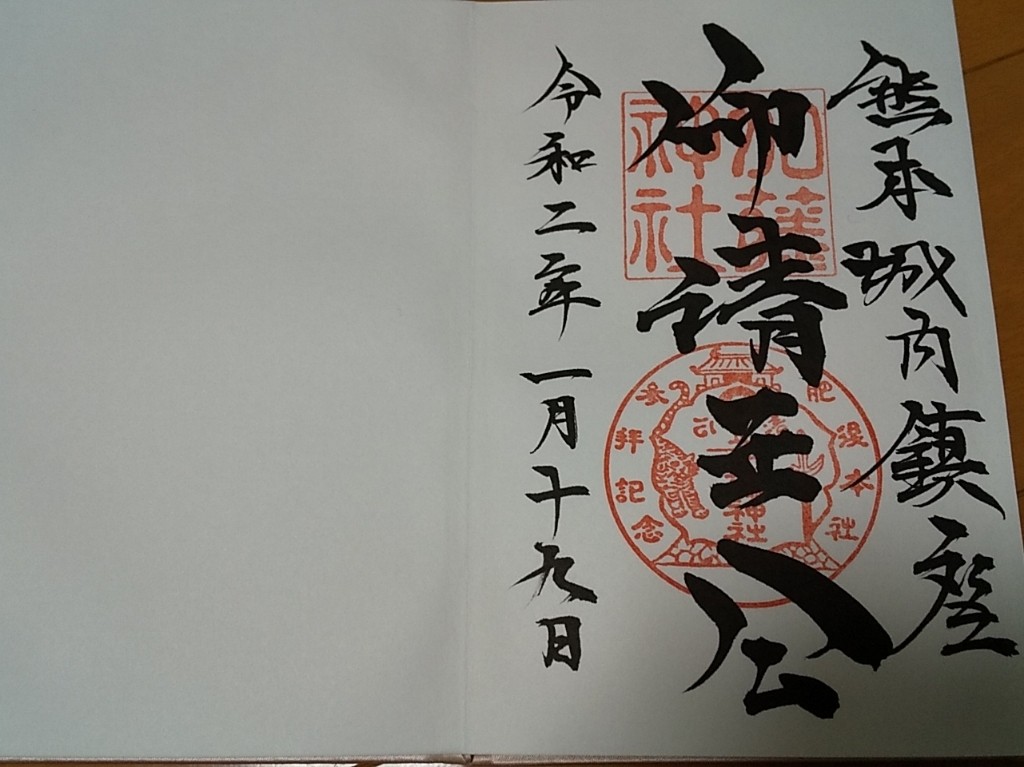 熊本城内鎮座
仰清正公
令和二年一月十九日
加藤
神社
肥後本社
参拝記念
神社